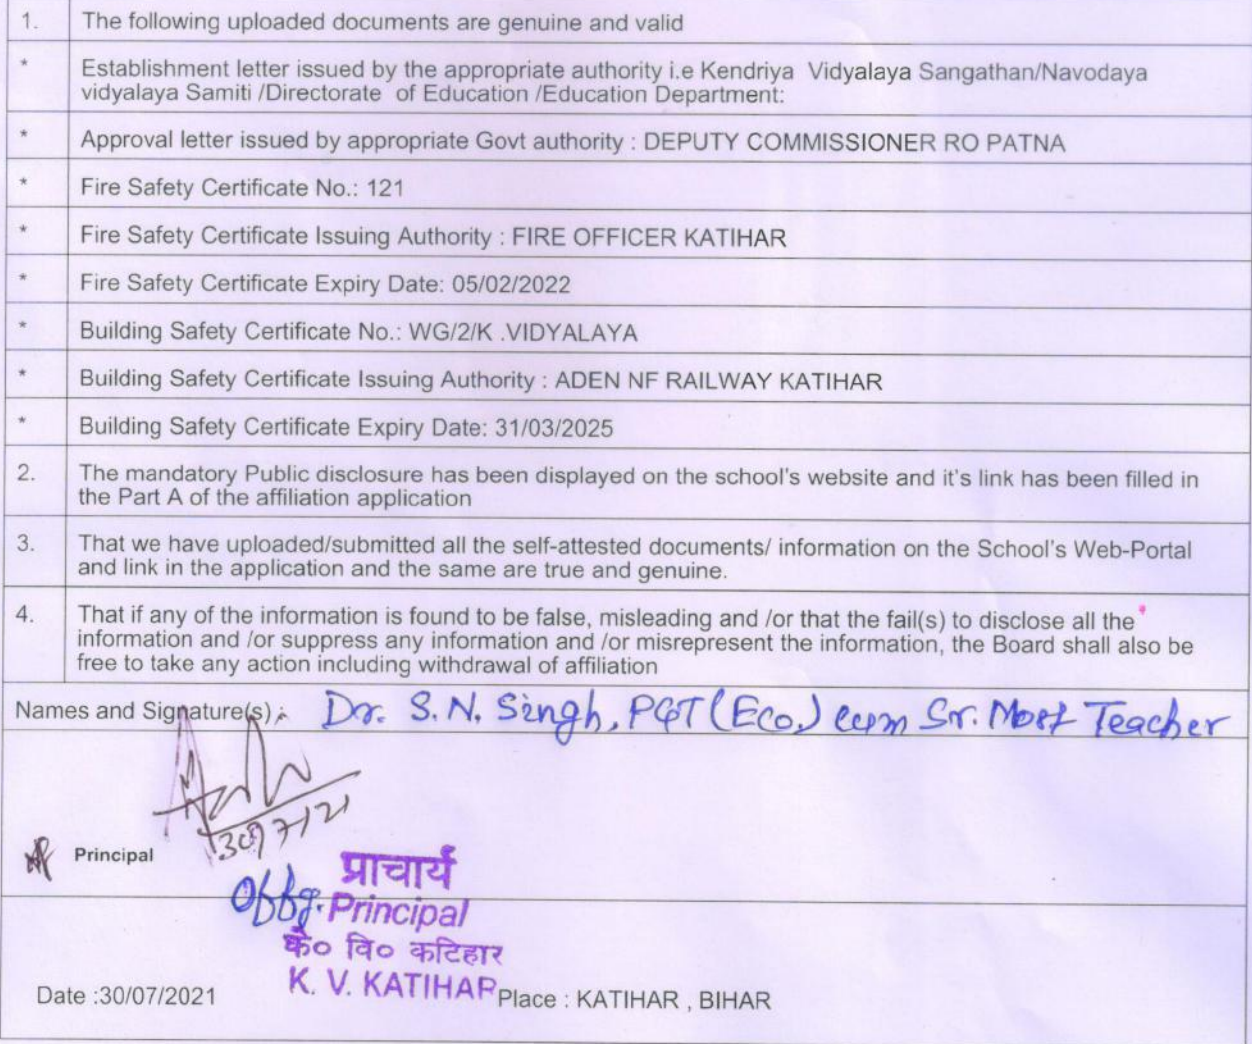 1. The following uploaded documents are genuine and valid
* Establishment letter issued by the appropriate authority i.e Kendriya Vidyalaya Sangathan/Navodaya
vidyalaya Samiti /Directorate of Education /Education Department:
* Approval letter issued by appropriate Govt authority : DEPUTY COMMISSIONER RO PATNA
* Fire Safety Certificate No.: 121
* Fire Safety Certificate Issuing Authority : FIRE OFFICER KATIHAR
* Fire Safety Certificate Expiry Date: 05/02/2022
* Building Safety Certificate No.: WG/2/K .VIDYALAYA
* Building Safety Certificate Issuing Authority : ADEN NF RAILWAY KATIHAR
* Building Safety Certificate Expiry Date: 31/03/2025
2. The mandatory Public disclosure has been displayed on the school's website and it's link has been filled in
the Part A of the affiliation application
3. That we have uploaded/submitted all the self-attested documents/ information on the School's Web-Portal
and link in the application and the same are true and genuine.
4. That if any of the information is found to be false, misleading and /or that the fail(s) to disclose all the
information and /or suppress any information and /or misrepresent the information, the Board shall also be
free to take any action including withdrawal of affiliation
Names and Signature(s) : Dr. S. N. Singh, PGT (Eco.) cum Sr. Most Teacher
Principal
प्राचार्य
Offg. Principal
के० वि० कटिहार
K. V. KATIHAR
Date :30/07/2021 Place : KATIHAR , BIHAR